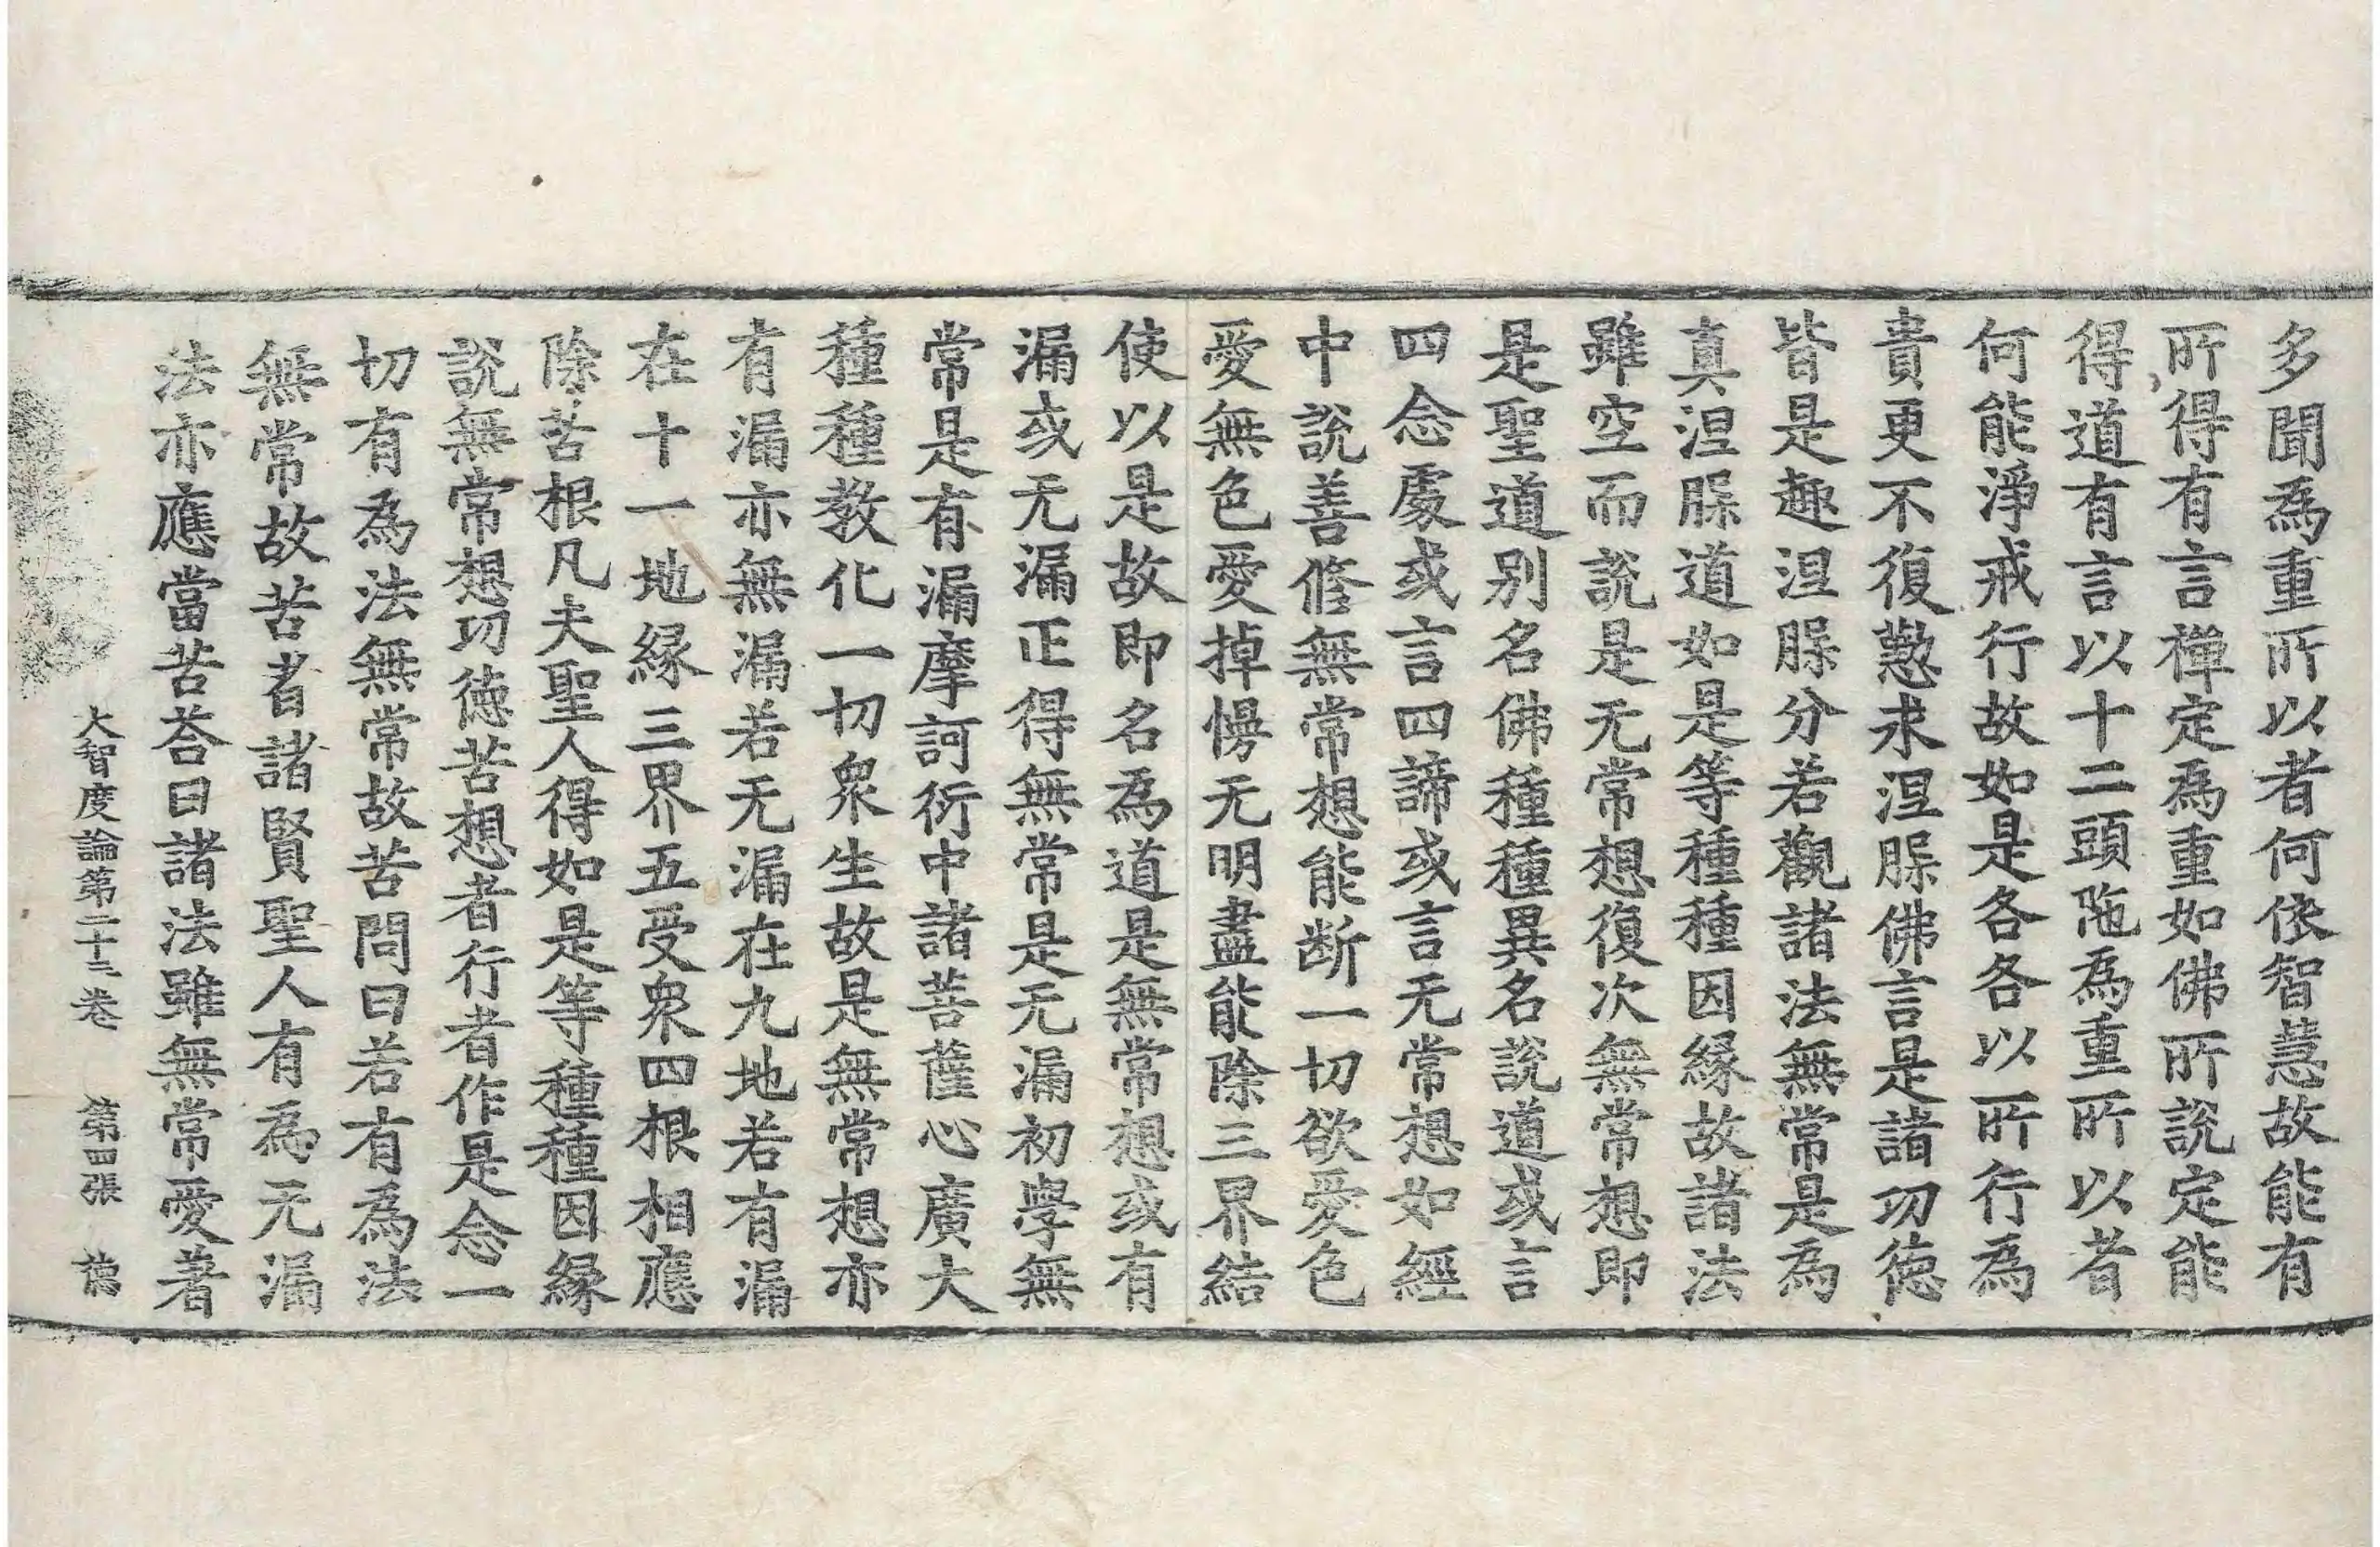 多聞為重所以者何依智慧故能有
所得有言禪定為重如佛所說定能
得道有言以十二頭陁為重所以者
何能淨戒行故如是各各以所行為
貴更不復懃求涅脲佛言是諸功徳
皆是趣涅脲分若觀諸法無常是為
真涅脲道如是等種種因緣故諸法
雖空而說是无常想復次無常想即
是聖道別名佛種種異名說道或言
四念處或言四諦或言无常想如經
中說善脩無常想能断一切欲愛色
愛無色愛掉慢无明盡能除三界結
使以是故即名為道是無常想或有
漏或无漏正得無常是无漏初學無
常是有漏摩訶衍中諸菩薩心廣大
種種教化一切衆生故是無常想亦
有漏亦無漏若无漏在九地若有漏
在十一地緣三界五受衆四根相應
除苦根凡夫聖人得如是等種種因緣
說無常想功徳苦想者行者作是念一
切有為法無常故苦問曰若有為法
無常故苦者諸賢聖人有為无漏
法亦應當苦荅曰諸法雖無常愛著
大智度論第二十三卷 第四張 德